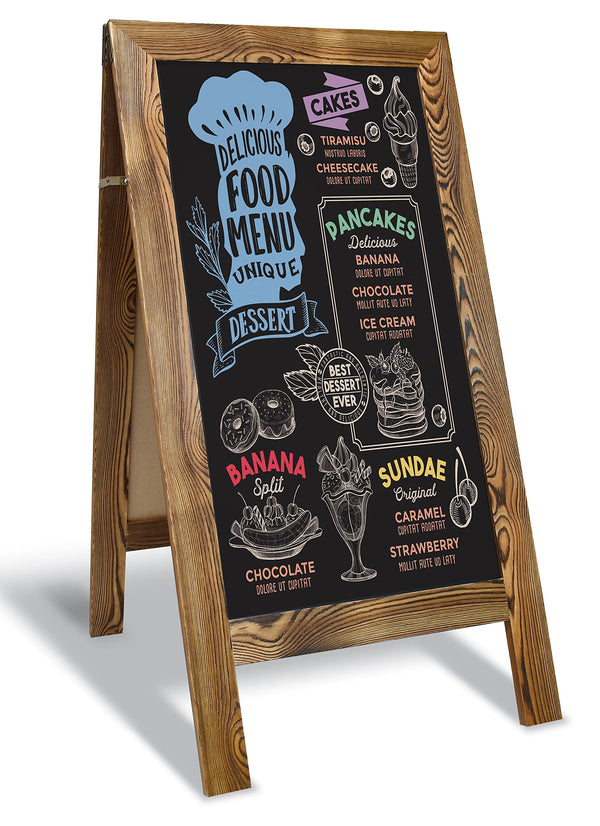 DELICIOUS
FOOD
MENU
UNIQUE
DESSERT
CAKES
TIRAMISU
NOSTRUD LABORIS
CHEESECAKE
DOLORE UT CUPITAT
PANCAKES
Delicious
BANANA
DOLORE UT CUPITAT
CHOCOLATE
MOLLIT AUTE UO LATY
ICE CREAM
CUPITAT ADDATAT
BEST
DESSERT
EVER
BANANA
Split
CHOCOLATE
DOLORE UT CUPITAT
SUNDAE
Original
CARAMEL
CUPITAT ADDATAT
STRAWBERRY
MOLLIT AUTE UO LATY